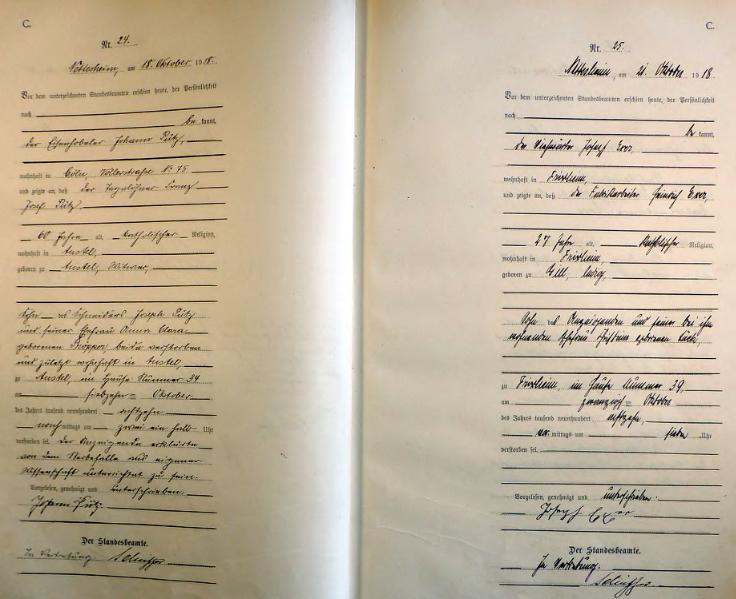 C.
Nr. 24.
Nettesheim, am 18. Oktober 1918.
Vor dem unterzeichneten Standesbeamten erschien heute, der Persönlichkeit
nach
be kannt,
der Eisenhobeler Johann Pütz,
wohnhaft in Cöln, straße Nr. 75
und zeigte an, daß der Tagelöhner Franz
Josef Pütz
60 Jahre alt, katholischer Religion,
wohnhaft in Anstel,
geboren zu Anstel, Witwer,
Sohn des Schneiders Joseph Pütz
und seiner Ehefrau Anna Clara
geborenen beide verstorben
und zuletzt wohnhaft in Anstel,
zu Anstel, im Hause Nummer 34
am siebzehn= Oktober
des Jahres tausend neunhundert achtzehn
nachmittags um zwei ein halb Uhr
verstorben sei. Der Anzeigende erklärte
von dem Sterbefalle aus eigener
Wissenschaft unterrichtet zu sein.
Vorgelesen, genehmigt und unterschrieben.
Johann Pütz
Der Standesbeamte.
In Vertretung:
C.
Nr. 25.
Nettesheim, am 21. Oktober 1918
Vor dem unterzeichneten Standesbeamten erschien heute, der Persönlichkeit
nach
be kannt,
der Josef
wohnhaft in Frixheim,
und zeigte an, daß der Fabrikarbeiter Heinrich
27 Jahre alt, katholischer Religion,
wohnhaft in Frixheim,
geboren zu ledig,
Sohn des Anzeigenden und seiner bei ihm
wohnenden Ehefrau geborenen
zu Frixheim, im Hause Nummer 39,
am zwanzig= Oktober
des Jahres tausend neunhundert achtzehn,
vor mittags um sieben Uhr
verstorben sei.
Vorgelesen, genehmigt und unterschrieben.
Josef
Der Standesbeamte.
In Vertretung.